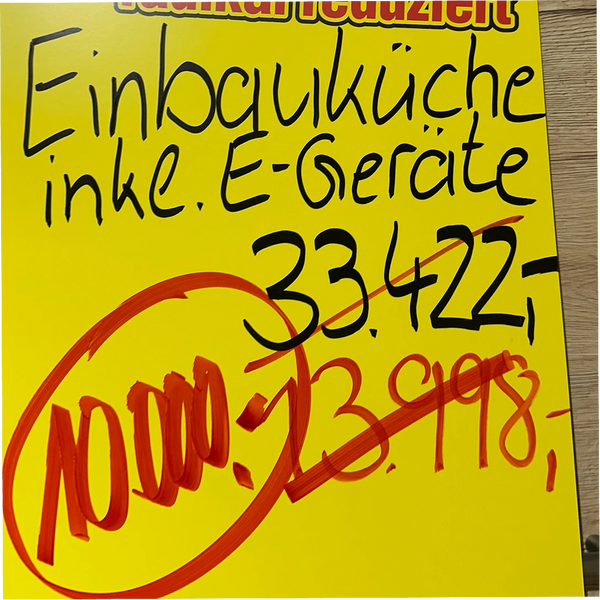 radikal reduziert
Einbauküche
inkl. E-Geräte
33.422,-
13.998,-
10.000.-